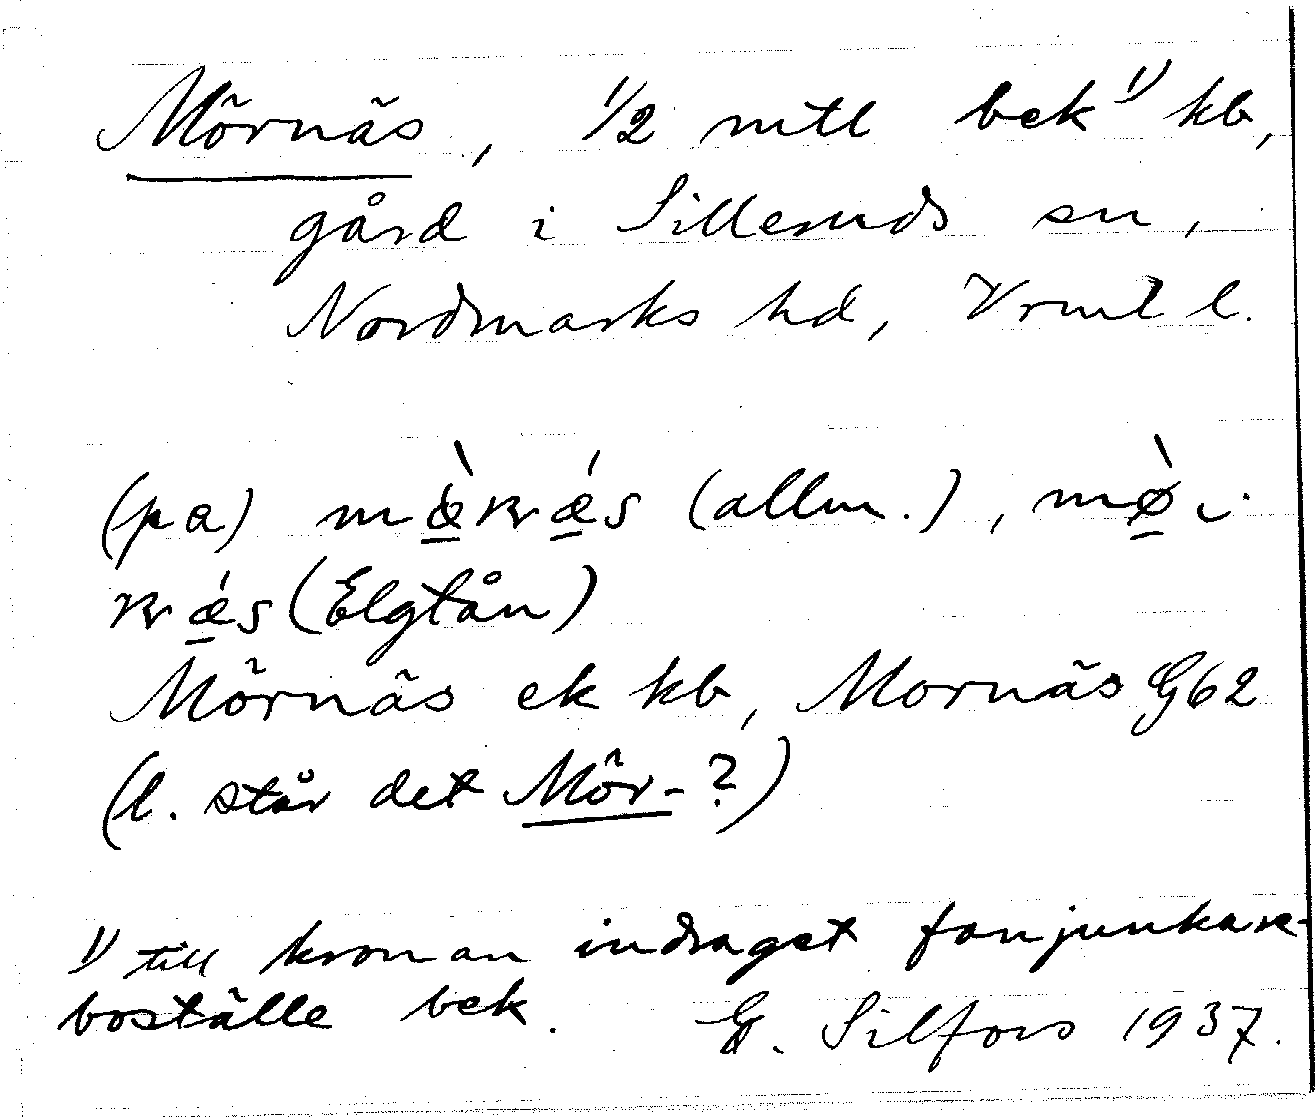 Mörnäs, 1/2 mtl bek 1) kb,
gård i Silleruds sn,
Nordmarks hd, Vrml l.
(pa) (allm.),
(Elgtån)
Mörnäs ek kb, Mornäs G62
(l. står det Mör-?)
1) till kronan indraget fanjunkare-
boställe bek. G. Silfors 1937.